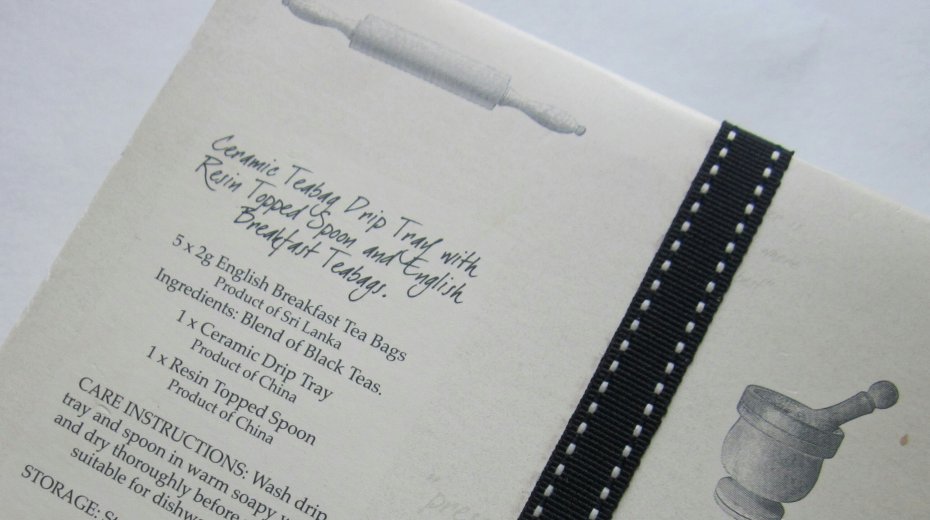 Ceramic Teabag Drip Tray with
Resin Topped Spoon and English
Breakfast Teabags.
5 x 2g English Breakfast Tea Bags
Product of Sri Lanka
Ingredients: Blend of Black Teas.
1 x Ceramic Drip Tray
Product of China
1 x Resin Topped Spoon
Product of China
CARE INSTRUCTIONS: Wash drip
tray and spoon in warm soapy
and dry thoroughly before
suitable for
STORAGE: